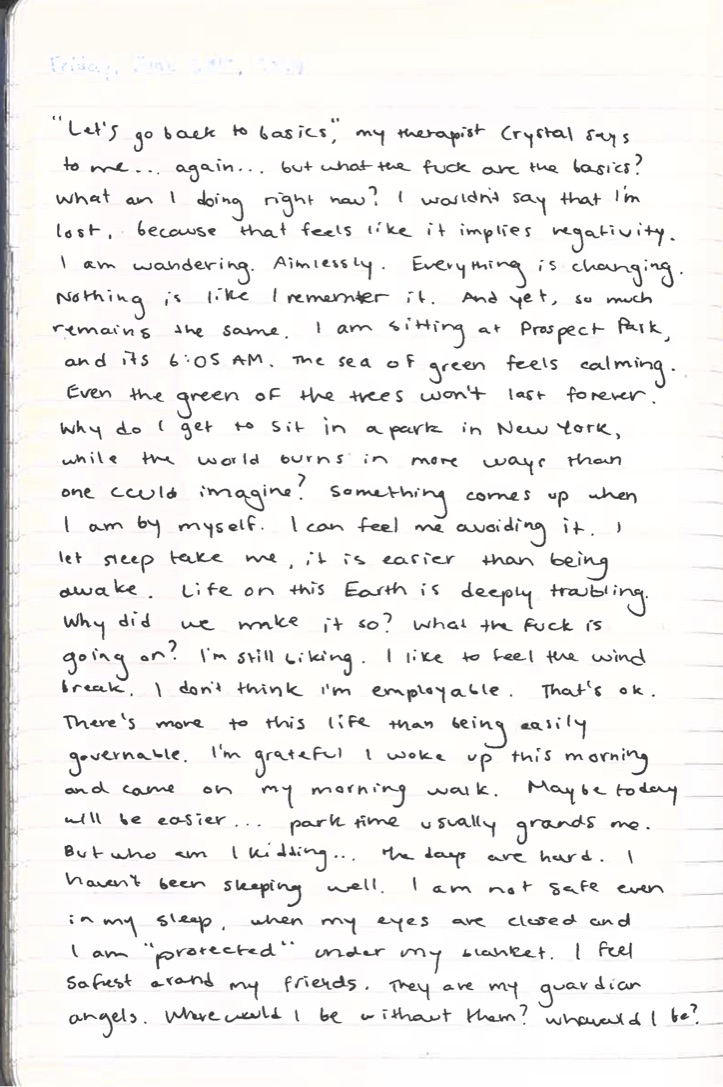 Friday, June
"Let's go back to basics," my therapist Crystal says
to me... again... but what the fuck are the basics?
What am I doing right now? I wouldn't say that I'm
lost, because that feels like it implies negativity.
I am wandering. Aimlessly. Everything is changing.
Nothing is like I remember it. And yet, so much
remains the same. I am sitting at Prospect Park,
and its 6:05 AM. The sea of green feels calming.
Even the green of the trees won't last forever.
Why do I get to sit in a park in New York,
while the world burns in more ways than
one could imagine? Something comes up when
I am by myself. I can feel me avoiding it. I
let sleep take me, it is easier than being
awake. Life on this Earth is deeply troubling.
Why did we make it so? What the fuck is
going on? I'm still biking. I like to feel the wind
break. I don't think I'm employable. That's ok.
There's more to this life than being easily
governable. I'm grateful I woke up this morning
and came on my morning walk. Maybe today
will be easier... park time usually grands me.
But who am I kidding... the days are hard. I
haven't been sleeping well. I am not safe even
in my sleep, when my eyes are closed and
I am "protected" under my blanket. I feel
safest arond my friends. They are my guardian
angels. Where would I be without them? Who would I be?